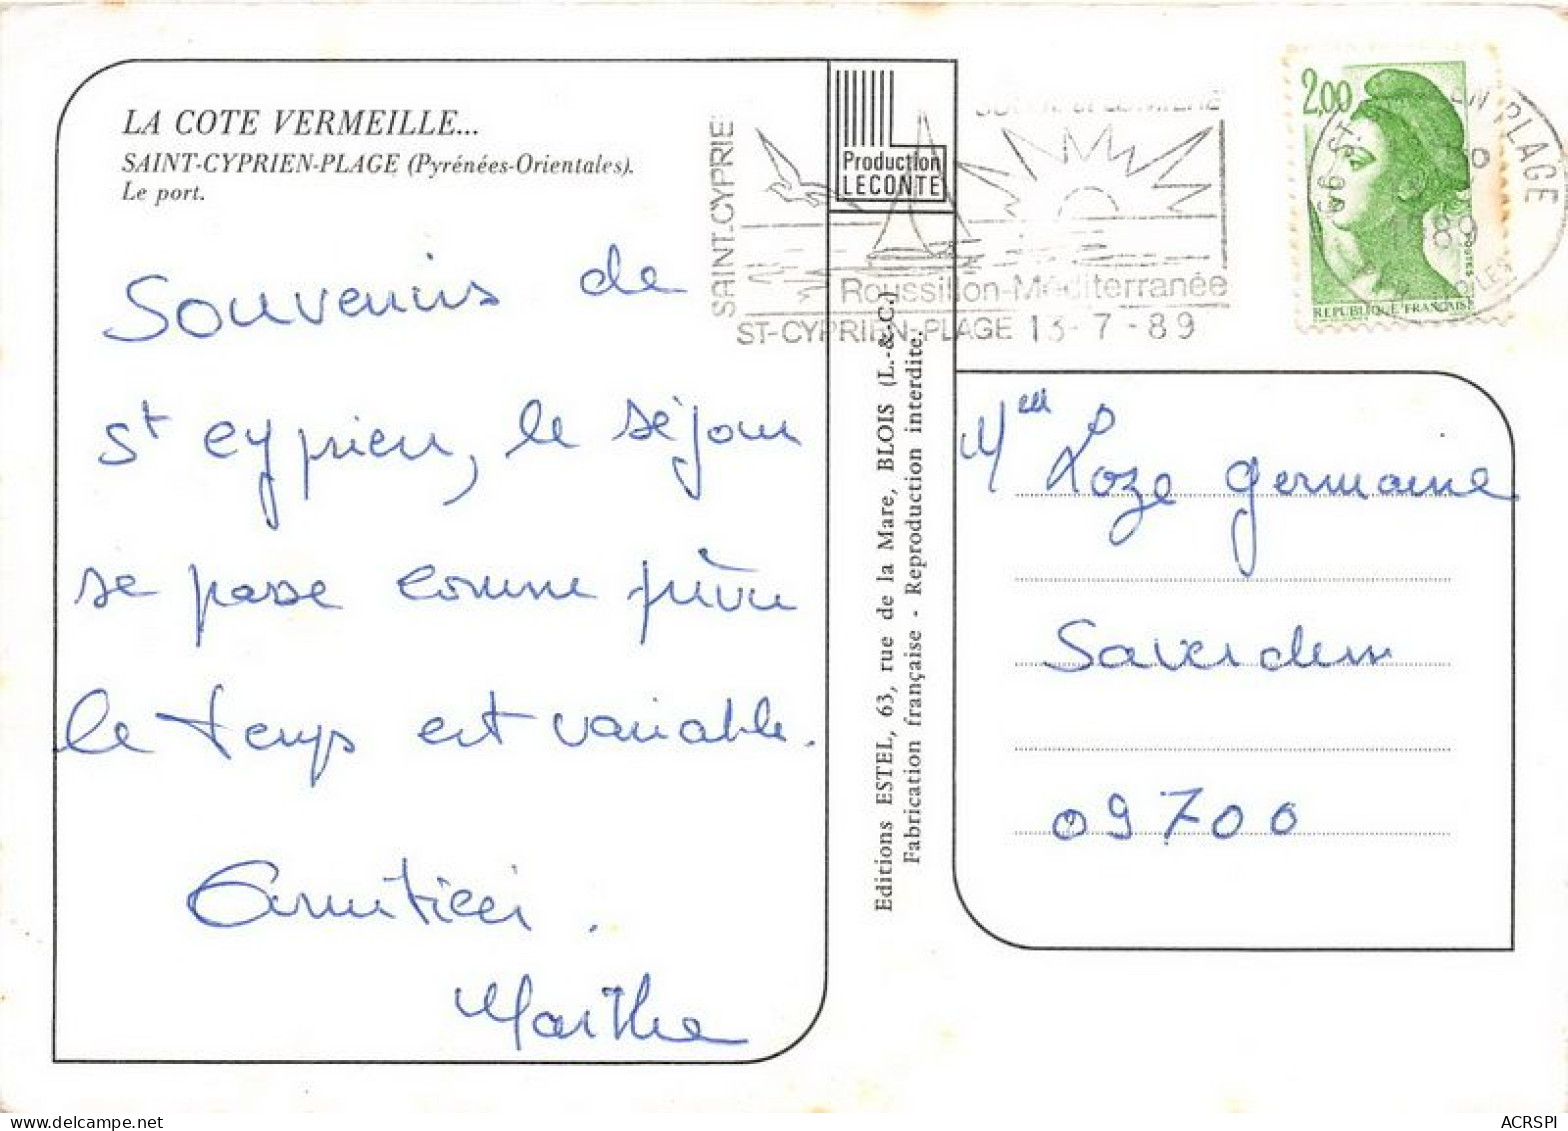 LA COTE VERMEILLE...
SAINT-CYPRIEN-PLAGE (Pyrénées-Orientales).
Le port.
Souvenirs de
St Cyprien, le séjour
se passe comme prévu
le temps est variable.
Amitiés.
Marthe
Production
LECONTE
SAINT-CYPRIE
Roussillon-Méditerranée
ST-CYPRIEN-PLAGE 13-7-89
2,00
REPUBLIQUE FRANÇAISE
POSTES
PLAGE
89
Editions ESTEL, 63, rue de la Mare, BLOIS (L.-&-C.)
Fabrication française - Reproduction interdite.
Mme Loze Germaine
Saverdun
09700
ACRSPI